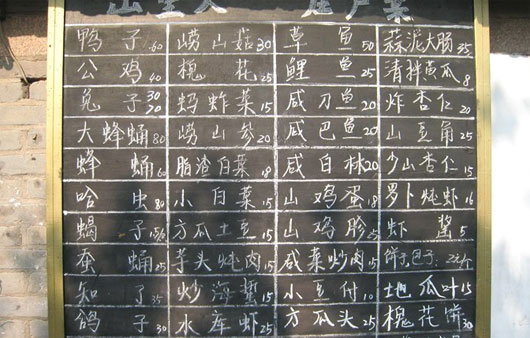 鸭子60 崂山菇30 草鱼50 蒜泥大肠35
公鸡40 槐花25 鲤鱼25 清拌黄瓜8
兔子30 70 蚂蚱菜15 咸刀鱼20 炸杏仁20
大蜂蛹80 崂山参20 咸巴鱼20 山豆角25
蜂蛹60 脂渣白菜18 咸白林20 少山杏仁15
哈虫80 小白菜15 山鸡蛋18 罗卜炖虾16
蝎子 方瓜土豆15 山鸡胗25 虾酱5
蚕蛹25 芋头炖肉15 咸菜炒肉15 饼子
知了35 炒海蜇15 小豆付10 地瓜叶15
鸽子30 水库虾25 方瓜头25 槐花饼30